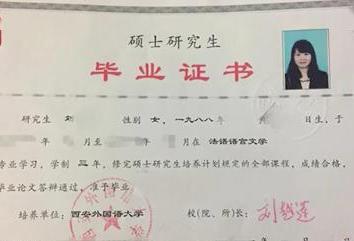 硕士研究生
毕业证书
研究生 刘 性别 女，一九八八年 日生，于
年 月至 年 月在 法语语言文学
专业学习，学制 三 年，修完硕士研究生培养计划规定的全部课程，成绩合格，
毕业论文答辩通过，准予毕业。
培养单位：西安外国语大学 校(院、所)长：